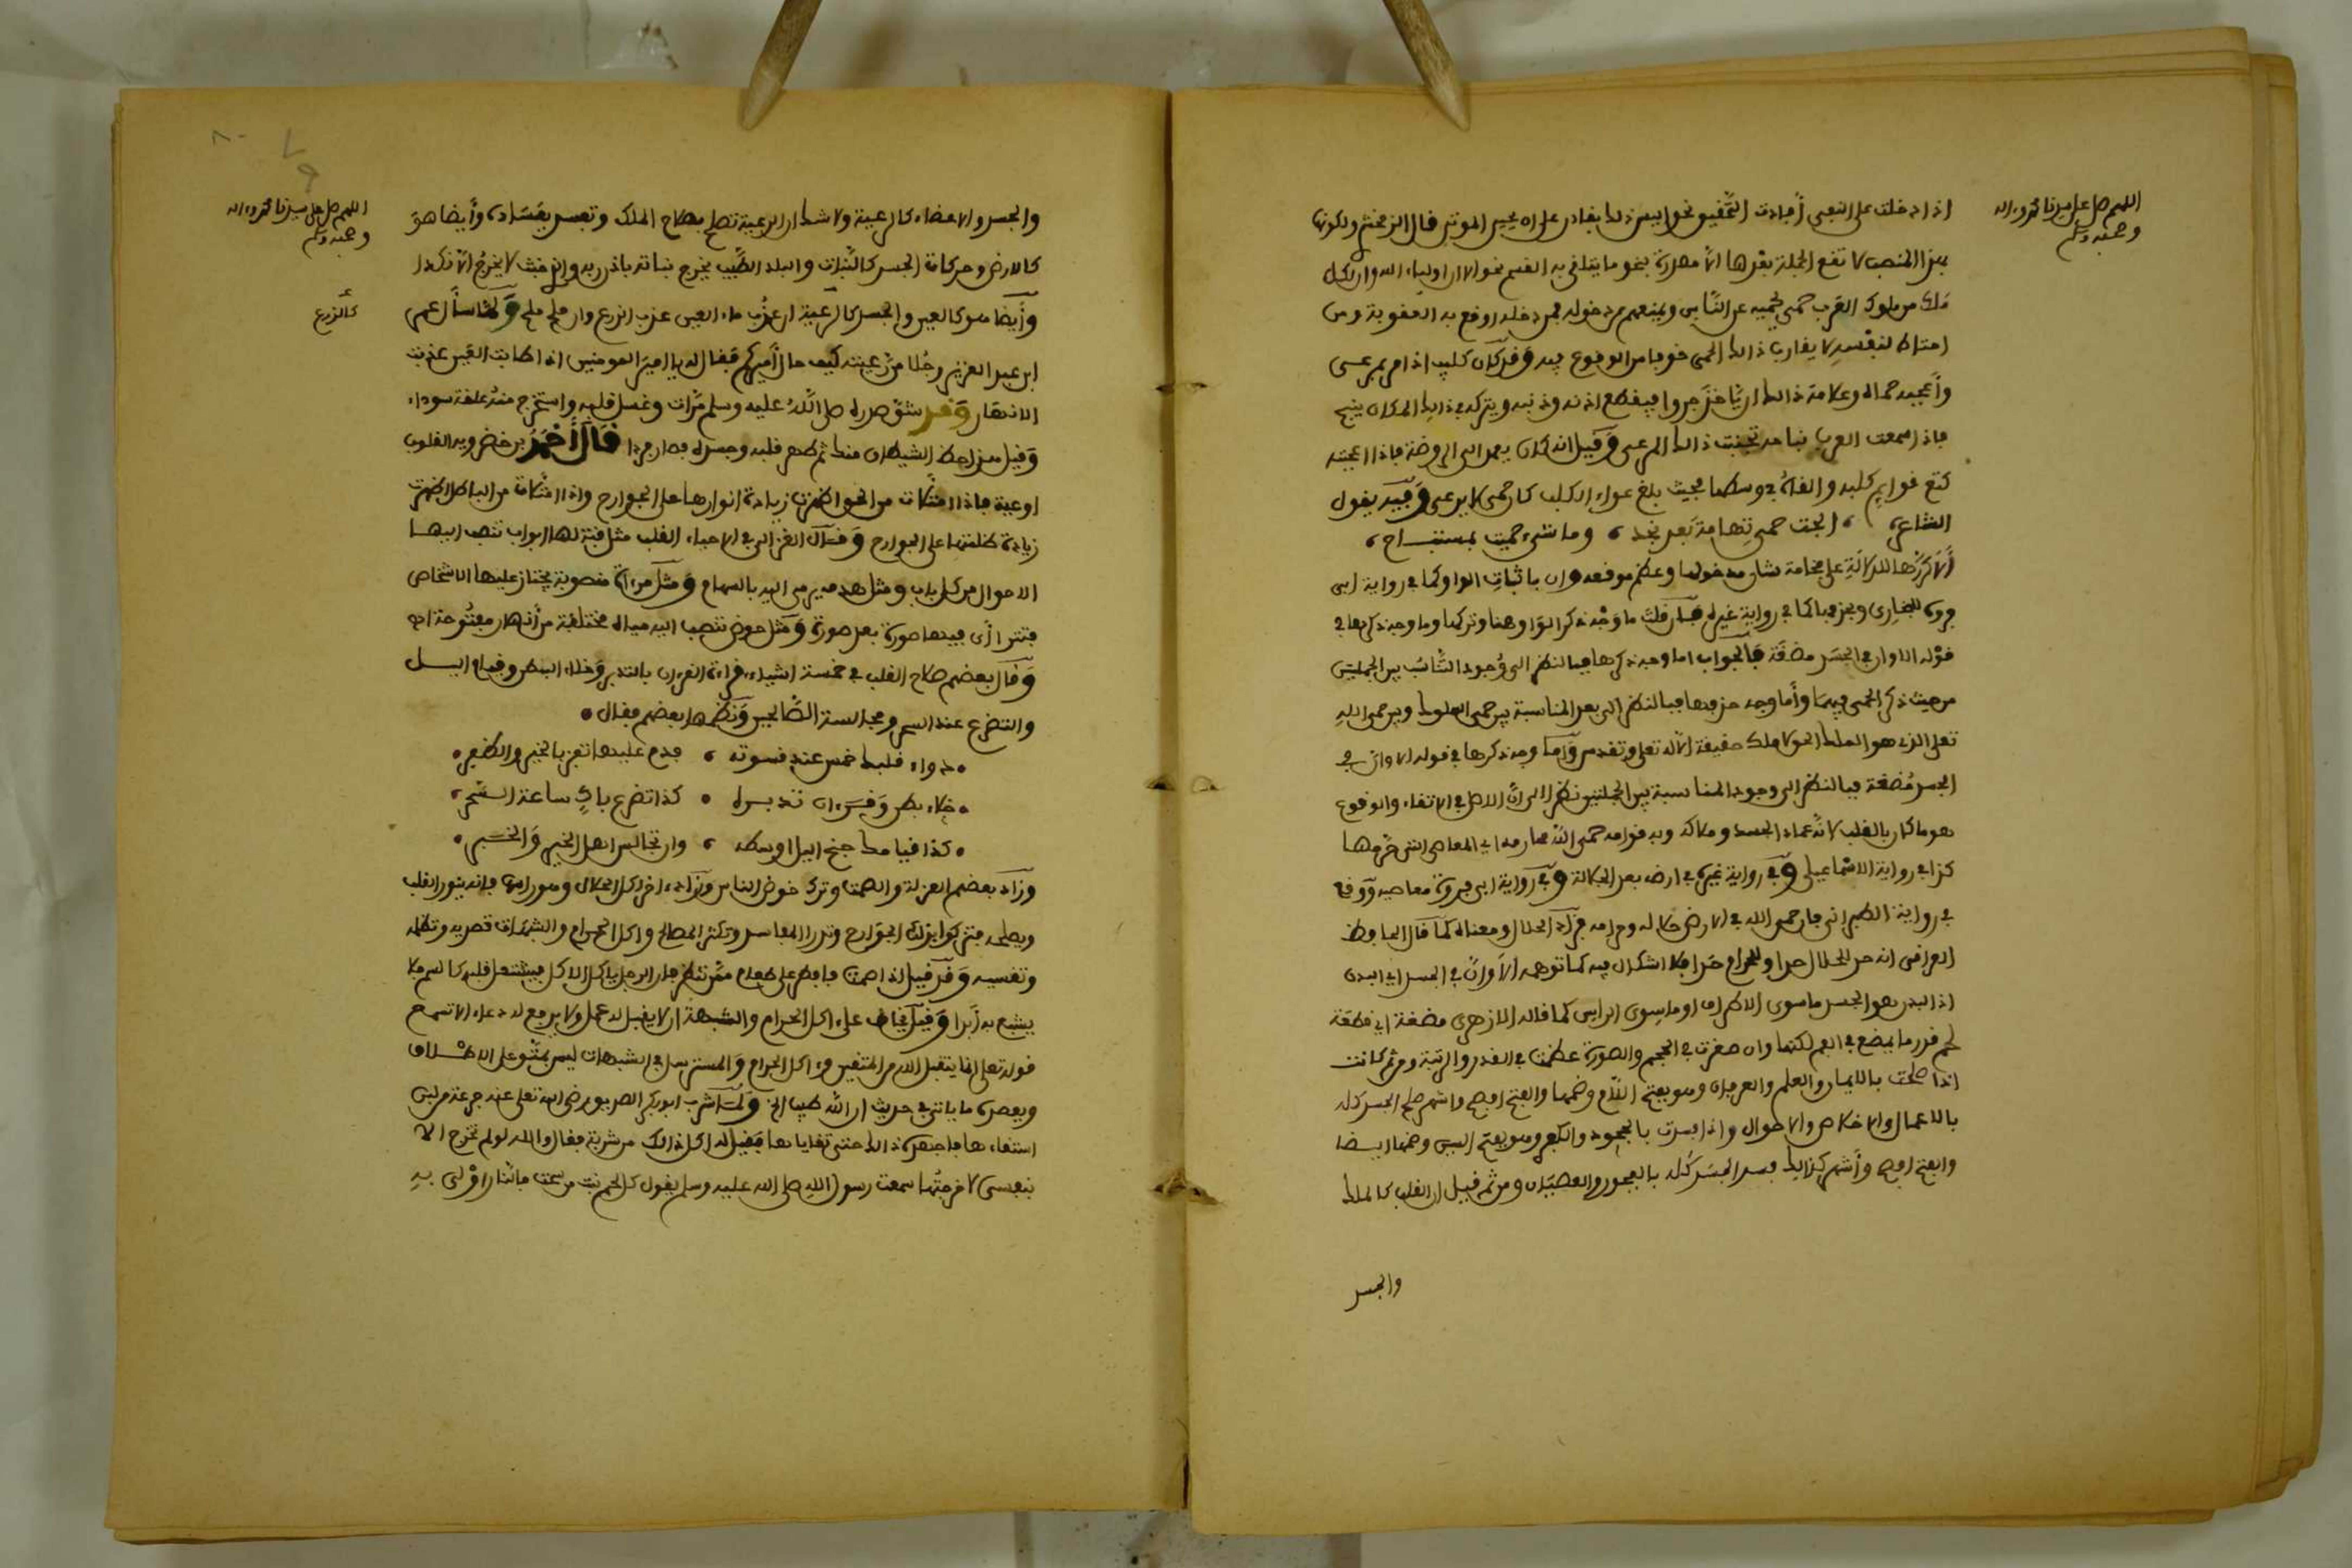 اللهم صل على سيدنا محمد وءاله
وصحبه وسلم
اذا دخلت على النفي أفادت التحقيق نحو اليس ذلك بقادر على ان يحيي الموتى قال الزمخشري ولكونها
بهذا المنصب لا تقع الجملة بعدها الا مصدرة بنحو ما يتلقى به القسم نحو الا ان اولياء الله وان لكل
ملك من ملوك العرب حمى يحميه عن الناس ويمنعهم من دخوله فمن دخله اوقع به العقوبة ومن
احتاط لنفسه لا يقارب ذالك الحمى خوفا من الوقوع فيه وقد كان كليب اذا مر بمرعى
وأعجبه حماه وعلامة ذالك ان ياخذ جروا فيقطع اذنه وذنبه ويتركه في ذالك المكان ينبح
فاذا سمعت العرب نباحه تجنبت ذالك المرعى وقيل انه كان يعمد الى الروضة فاذا اعجبته
كتع قوايم كلبه والقاه في وسطها فحيث بلغ عواء الكلب كان حمى لا يرعى وفيه يقول
الشاعر ، ابحت حمى تهامة بعد نجد ، وما شيء حميت بمستباح ،
ألا كررها للدلالة على فخامة شان مدخولها وعظم موقعه وان باثبات الواو كما في رواية ابي
فروة للبخاري وبحذفها كما في رواية غيره فان قلت ما وجه ذكر الواو هنا وتركها وما وجه ذكرها في
قوله الا وان في الجسد مضغة فالجواب اما وجه ذكرها فبالنظر الى وجود التناسب بين الجملتين
من حيث ذكر الحمى فيهما وأما وجه حذفها فبالنظر الى بعد المناسبة بين حمى الملوك وبين حمى الله
تعلى الذي هو الملك الحق لا ملك حقيقة الا له تعلى وتقدس وأما وجه ذكرها في قوله الا وان في
الجسد مضغة فبالنظر الى وجود المناسبة بين الجملتين نظرا الى ان الاصل في الاتقاء والوقوع
هو ما كان بالقلب لانه عماد الجسد وملاكه وبه قوامه حمى الله محارمه اي المعاصي التي حرمها
كذا في رواية الاسماعيلي وفي رواية غيره في ارضه بعد الجلالة وفي رواية ابي فروة معاصيه ووقع
في رواية الطبراني فان حمى الله في الارض حلاله وحرامه فزاد الحلال ومعناه كما قال الحافظ
العراقي انه حد للحلال حدا وللحرام حدا فلا اشكال فيه كما توهمه الا وان في الجسد اي البدن
اذ البدن هو الجسد ما سوى الاطراف او ما سوى الراس كما قاله الازهري مضغة اي قطعة
لحم قدر ما يمضغ في الفم لكنها وان صغرت في الحجم والصورة عظمت في القدر والرتبة ومن ثم كانت
اذا صلحت بالايمان والعلم والعرفان وهو بفتح اللام وضمها والفتح افصح واشهر صلح الجسد كله
بالاعمال والاخلاص والاحوال واذا فسدت بالجحود والكفر وهو بفتح السين وضمها ايضا
والفتح افصح وأشهر كذالك فسد الجسد كله بالفجور والعصيان ومن ثم قيل ان القلب كالملك
والجسد
اللهم صل على سيدنا محمد وءاله
وصحبه وسلم
كالزرع
والجسد والاعضاء كالرعية ولا شك ان الرعية تصلح بصلاح الملك وتفسد بفساده وأيضا هو
كالارض وحركات الجسد كالنبات والبلد الطيب يخرج نباته باذن ربه والذي خبث لا يخرج الا نكدا
وأيضا هو كالعين والجسد كالرعية ان عذب ماء العين عذب الزرع وان ملح ملح ولما سأل عمر
ابن عبد العزيز رجلا من رعيته كيف حال أميركم فقال له يا امير المومنين اذا طابت العين عذبت
الانهار وقد شق صدره صلى الله عليه وسلم مرات وغسل قلبه واستخرج منه علقة سوداء
وقيل هذا حظ الشيطان منك ثم طهر قلبه وجسده فصار فردا قال أحمد بن خضرويه القلوب
اوعية فاذا امتلات من الحق اظهرت زيادة انوارها على الجوارح واذا امتلات من الباطل اظهرت
زيادة ظلمتها على الجوارح وقال الغزالي في الاحياء القلب مثل قبة لها ابواب تنصب اليها
الاحوال من كل باب ومثل هدف يرمى اليه بالسهام ومثل مرءاة منصوبة يجتاز عليها الاشخاص
فتتراءى فيها صورة بعد صورة ومثل حوض تنصب اليه مياه مختلفة من أنهار مفتوحة اليه
وقال بعضهم صلاح القلب في خمسة اشياء قراءة القرءان بالتدبر وخلاء البطن وقيام اليل
والتضرع عند السحر ومجالسة الصالحين ونظمها بعضهم فقال
دواء قلبك خمس عند قسوته ، فدم عليها تفز بالخير والظفر
خلاء بطن وقرءان تدبره • كذا تضرع باك ساعة السحر
كذا قيامك جنح اليل اوسطه ، وان تجالس اهل الخير والخبر
وزاد بعضهم العزلة والصمت وترك خوض الناس وزاد ءاخر اكل الحلال وهو راسها فانه ينور القلب
ويصلحه فتزكوا بذلك الجوارح وتدرأ المفاسد وتكثر المصالح واكل الحرام والشبهات تصديه وتظلمه
وتقسيه وقد قيل اذا صمت فافطر على طعام من تنظر فان الرجل ياكل الاكل فيشتعل قلبه كالسم فلا
ينتفع به أبدا وقيل يخاف على اكل الحرام والشبهة ان لا يقبل له عمل ولا يرفع له دعاء الا تسمع
قوله تعلى انما يتقبل الله من المتقين وءاكل الحرام والمسترسل في الشبهات ليس بمتق على الاطلاق
ويعضده ما ياتي في حديث ان الله طيب الخ ولما شرب ابو بكر الصديق رضي الله تعلى عنه جرعة من لبن
استقاءها فاجهده ذالك حتى تقاياها فقيل له اكل ذالك من شربة فقال والله لو لم تخرج الا
بنفسي لاخرجتها سمعت رسول الله صلى الله عليه وسلم يقول كل لحم نبت من سحت فالنار اولى به